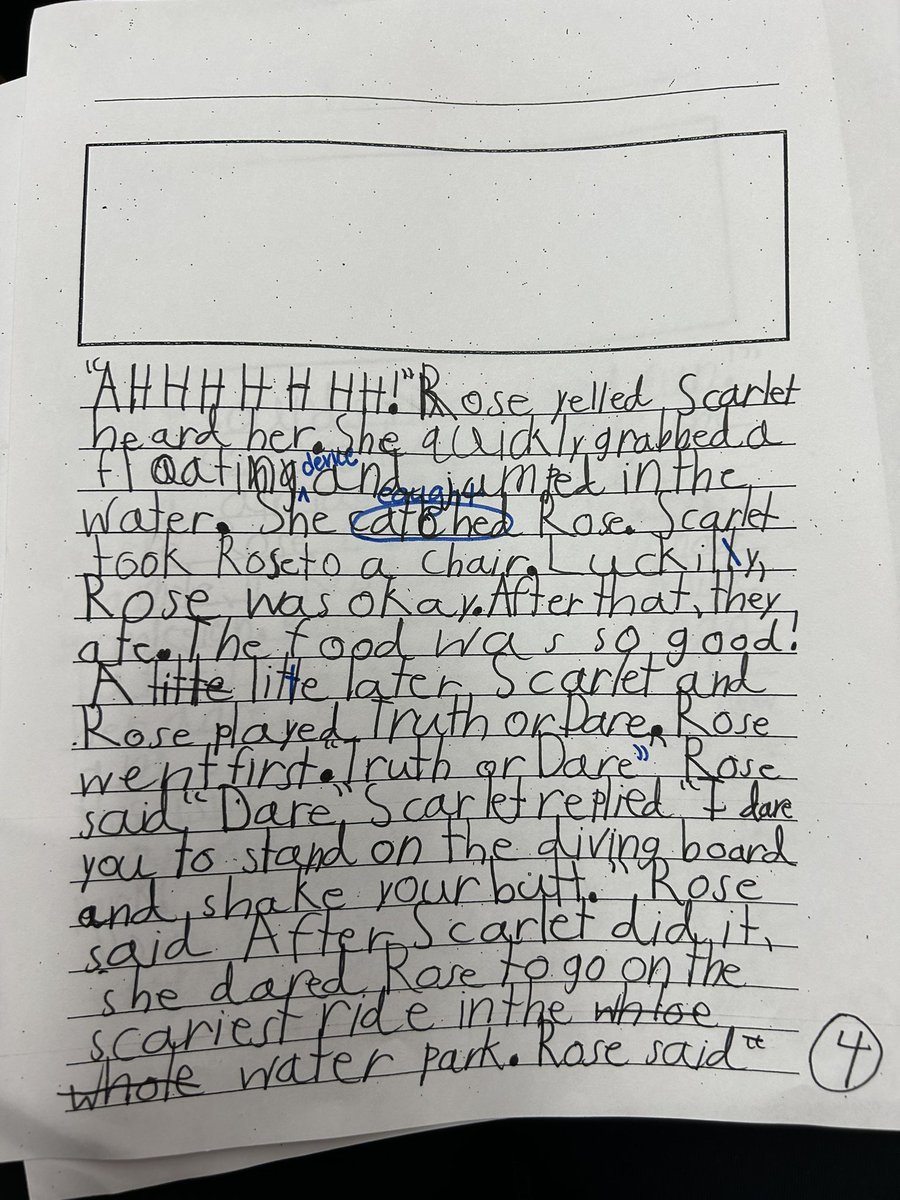 "AHHHHHHH!" Rose yelled Scarlet
heard her. She quickly grabbed a
device
floating and jumped in the
caught
water. She catched Rose. Scarlet
took Rose to a chair. Luckilly,
Rose was okay. After that, they
ate. The food was so good!
A litte little later, Scarlet and
Rose played Truth or Dare. Rose
went first. "Truth or Dare" Rose
said "Dare" Scarlet replied "I dare
you to stand on the diving board
and shake your butt." Rose
said After Scarlet did it,
she dared Rose to go on the
scariest ride in the whloe
whole water park. Rose said "
4